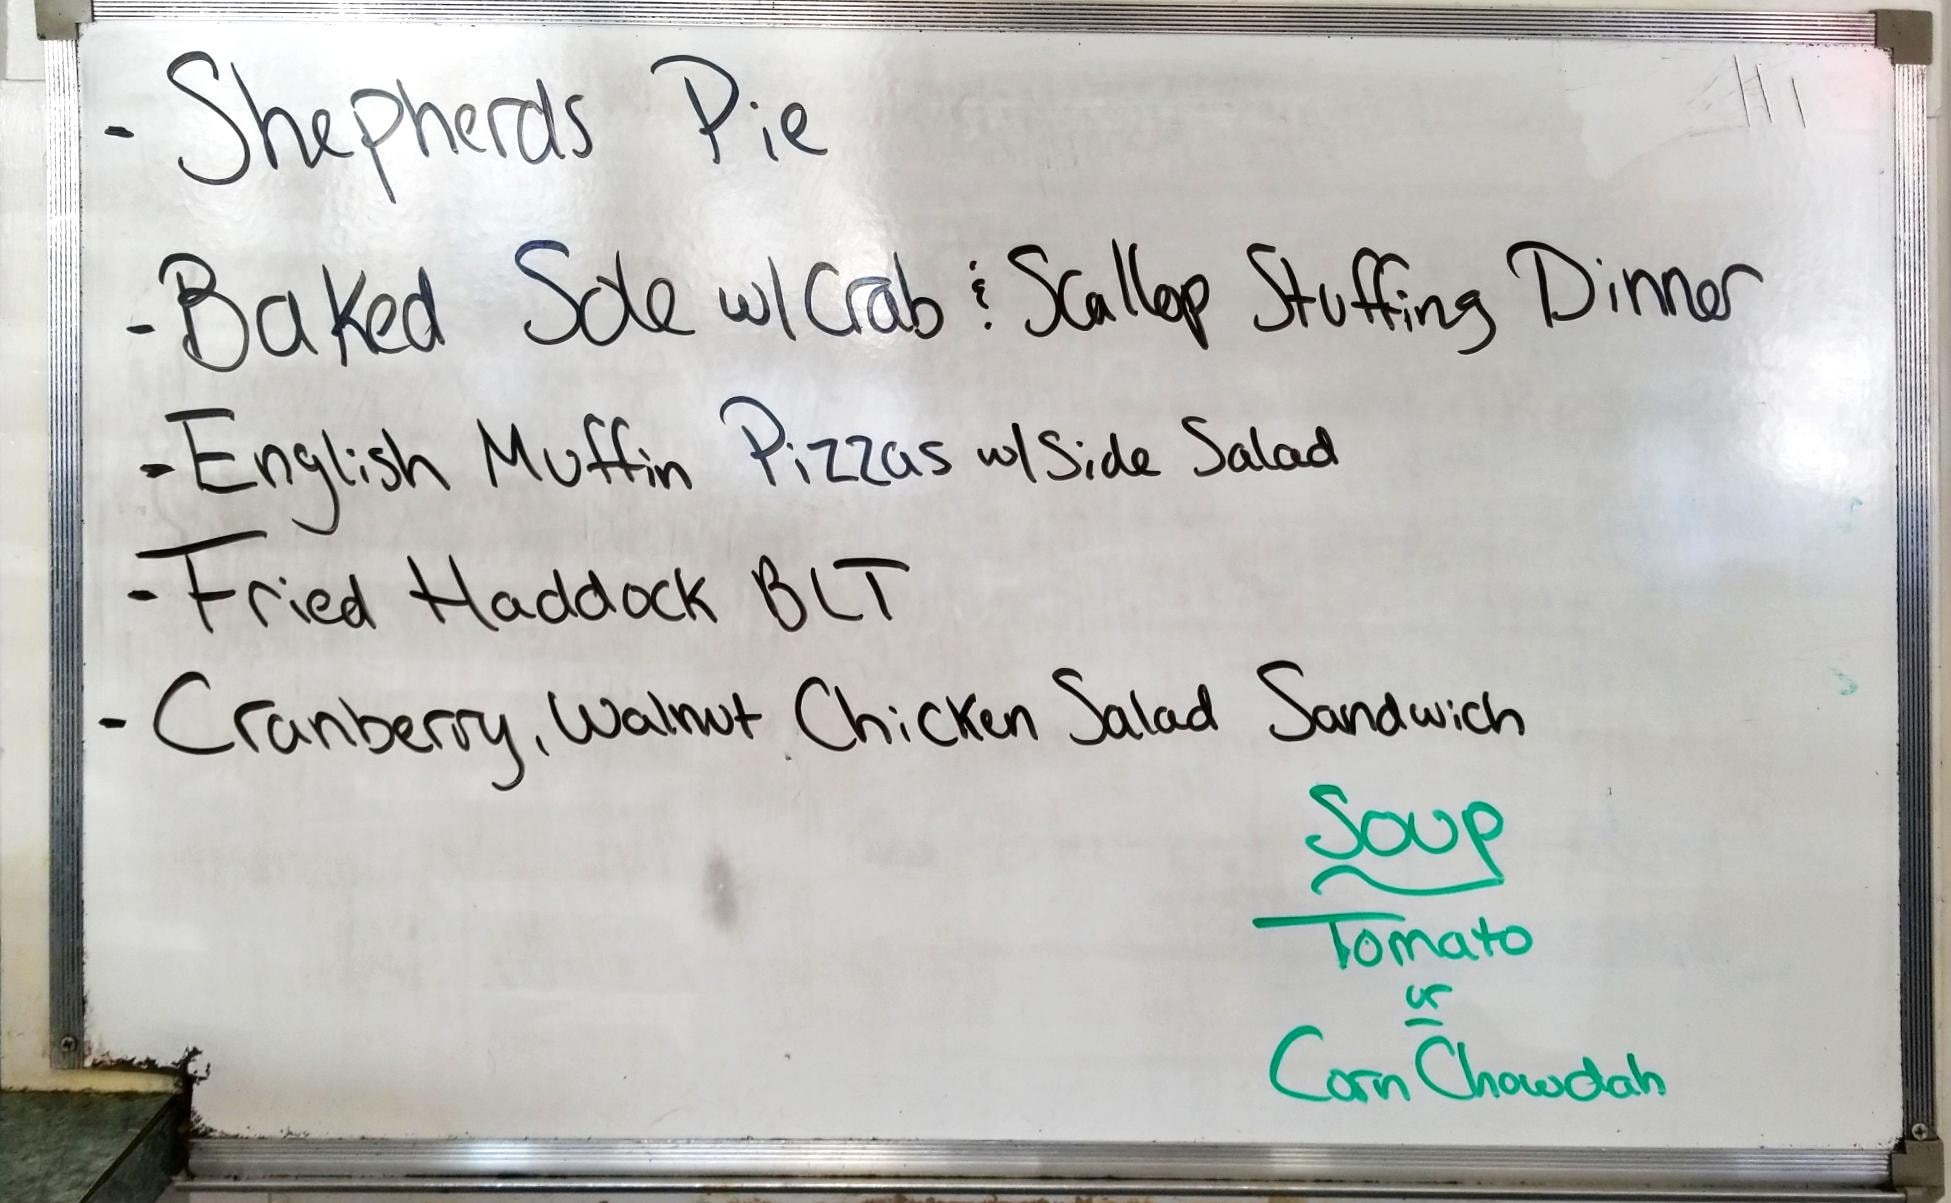 - Shepherds Pie
- Baked Sole w/ Crab & Scallop Stuffing Dinner
- English Muffin Pizzas w/ Side Salad
- Fried Haddock BLT
- Cranberry, Walnut Chicken Salad Sandwich
Soup
Tomato
or
Corn Chowdah